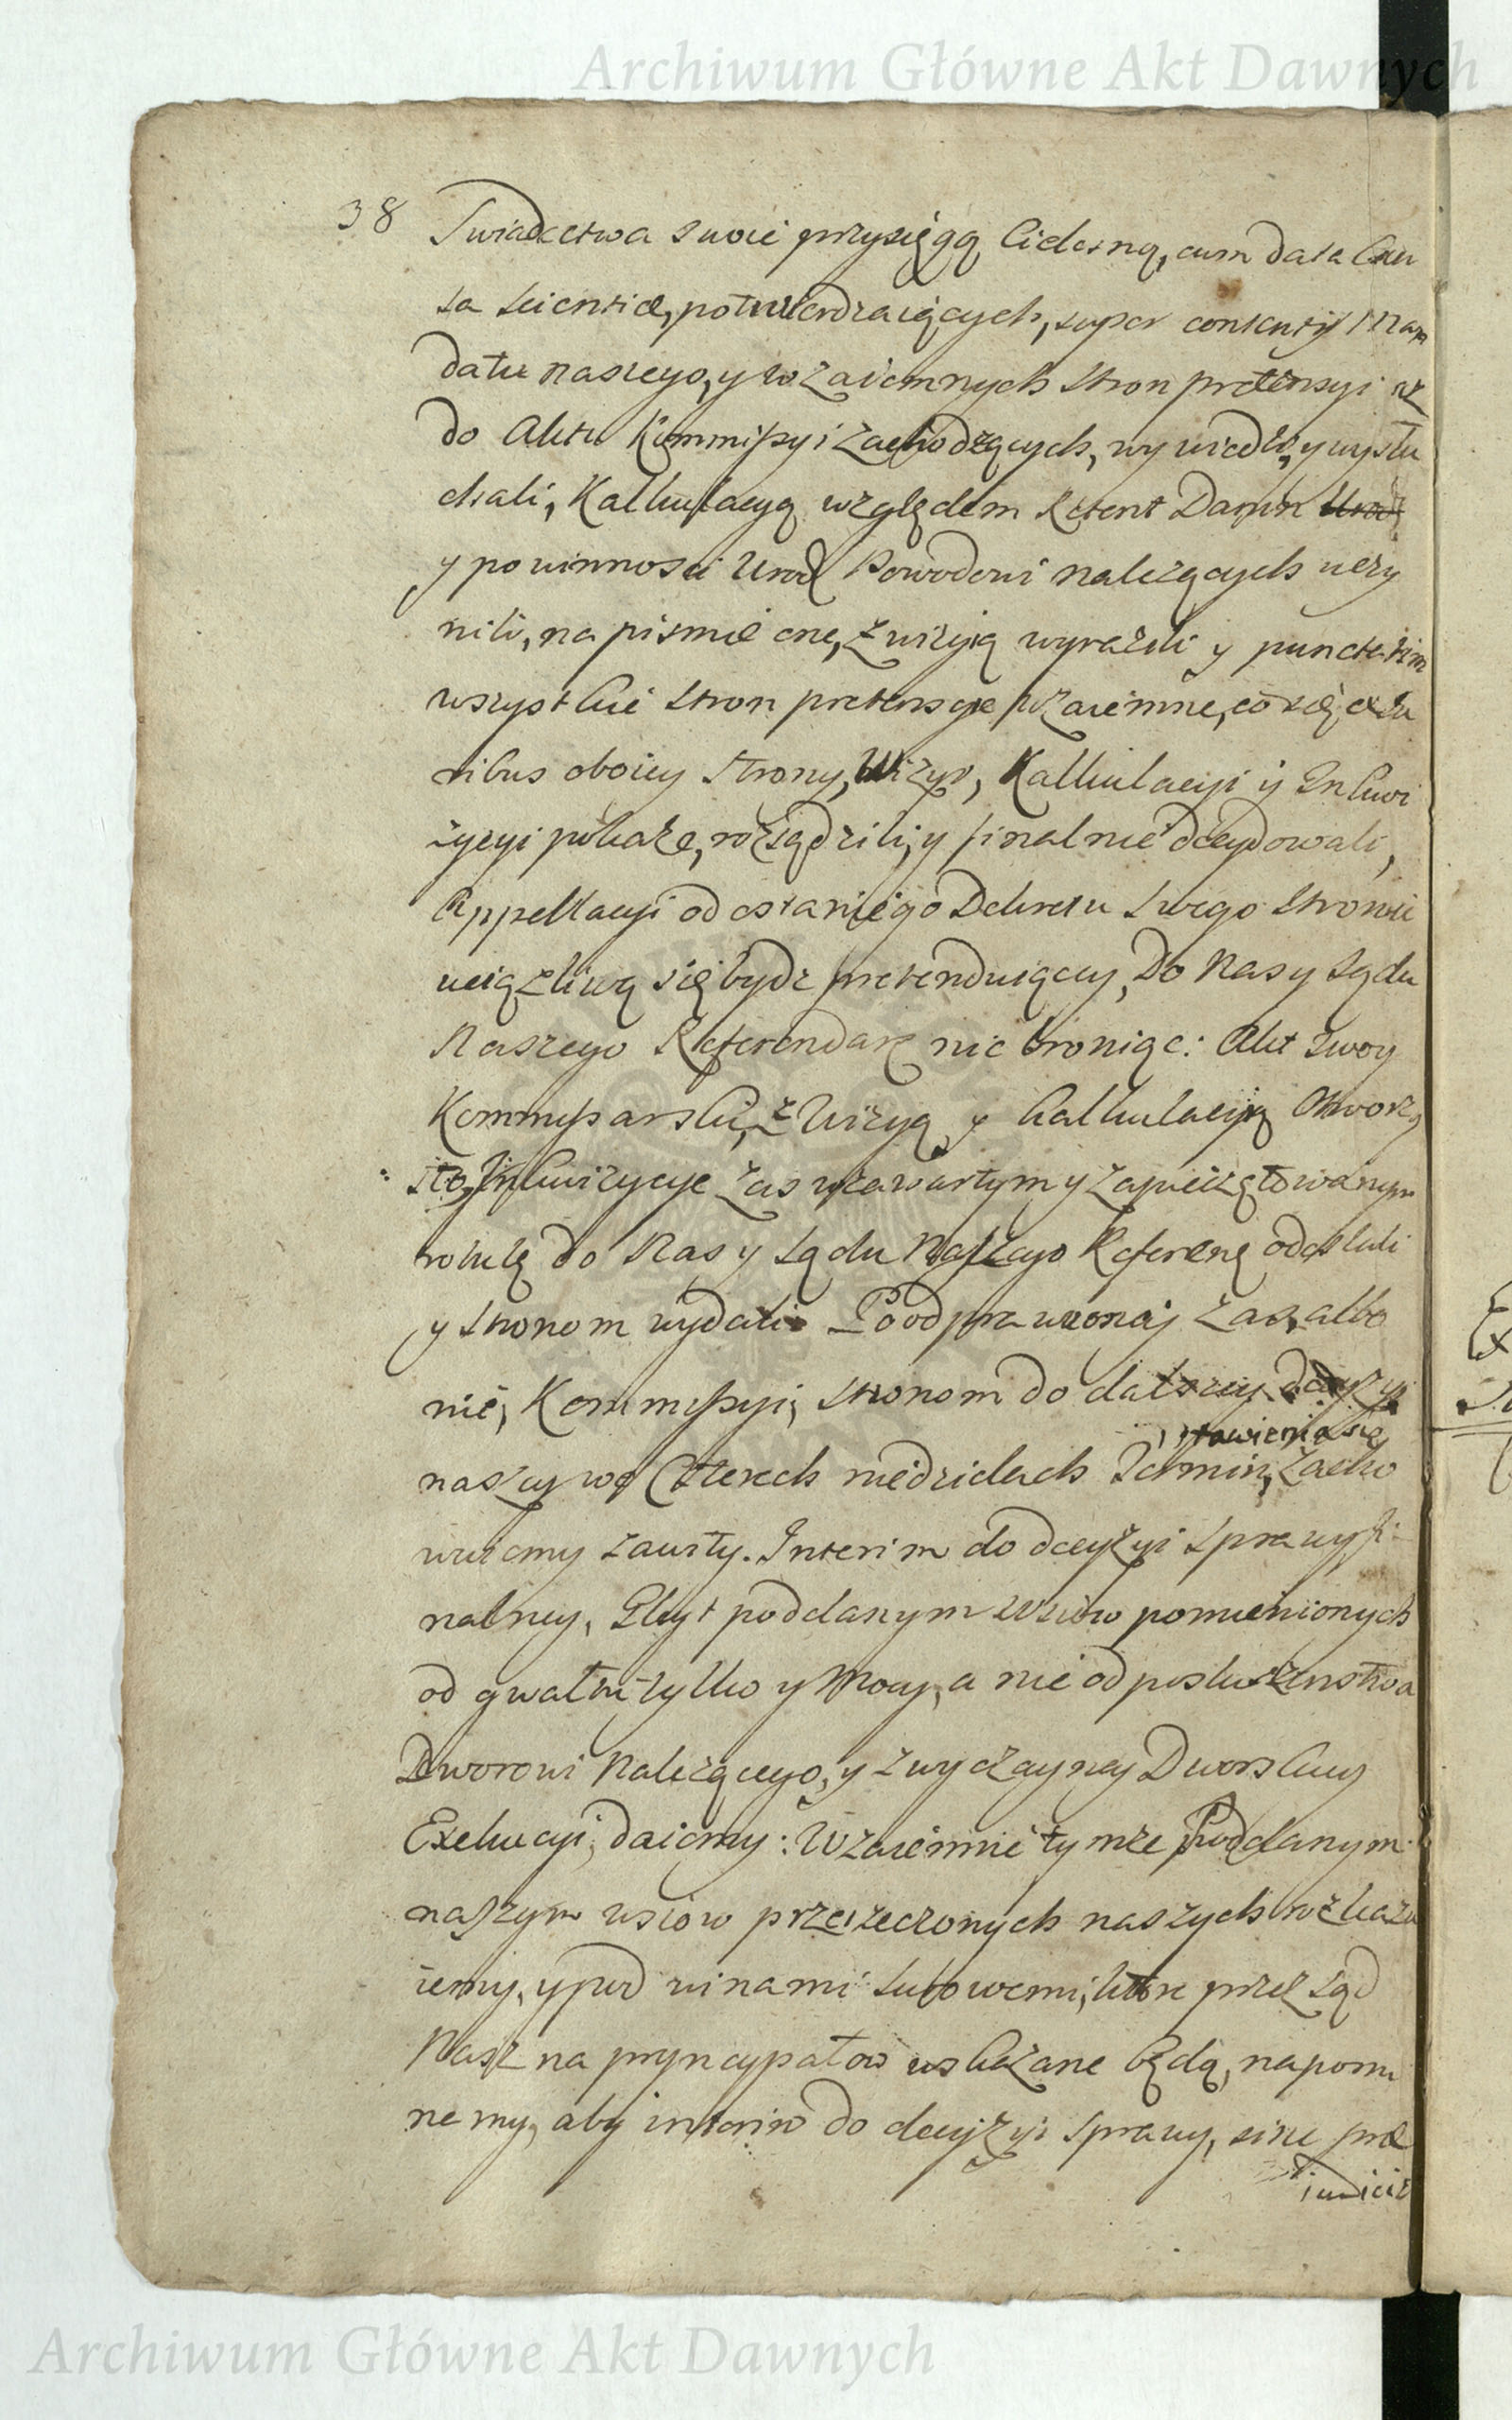 Archiwum Główne Akt Dawnych
38
Swiadectwa swoie przysięgą Cielesną, cum data Cau
sa scientiæ, potwierdzaiących, super contenty Man
datu naszego, y wzaiemnych stron pretensyi aż
do Aktu Kommissyi zachodzących, wywiedli, y wysłu
chali, Kalkulacyą względem Retent Danin Urod
y powinnosci Urod Powodowi należących uczy
nili, na pismie onę, z wizyią wyrazili y punctatim
wszystkie stron pretensye wzaiemne, co się ex Iu
ribus oboiey strony, Wizyi, Kalkulacyi y Inkwi
zycyi pokaże, rozsądzili, y finalnie decydowali,
Appellacyi od ostatniego Dekretu swego stronie
uciążliwą się bydz pretenduiącey, Do Nas y Sądu
Naszego Referendarz nie broniąc: Akt swoy
Kommyssarski, z Wizyą y Kalkulacyią Otworzy
sto, Inkwizycye zas w zawartym y zapieczętowanym
rotule do Nas y Sądu Naszego Referene odesłali
y stronom wydali. Po odprawioney zas, albo
nie, Kommyssyi, stronom do dalszey decyzyi
stawienia się
naszey we Czterech niedzielach Termin, zacho
wuiemy zawity. Interim do decyzyi sprawy fi
nalney, Gleyt poddanym wsiow pomienionych
od gwałtu tylko y Mocy, a nie od posłuszenstwa
Dworowi Należącego, y zwyczayney Dworskiey
Exekucyi, daiemy: Wzaiemnie tymże Poddanym
naszym wsiow przerzeczonych naszych rozkazu
iemy, y pod winami surowemi, ktore przez Sąd
Nasz na pryncypałow wskazane będą, napomi
namy, aby interim do decyzyi sprawy, sine præ
iudicio
Archiwum Główne Akt Dawnych